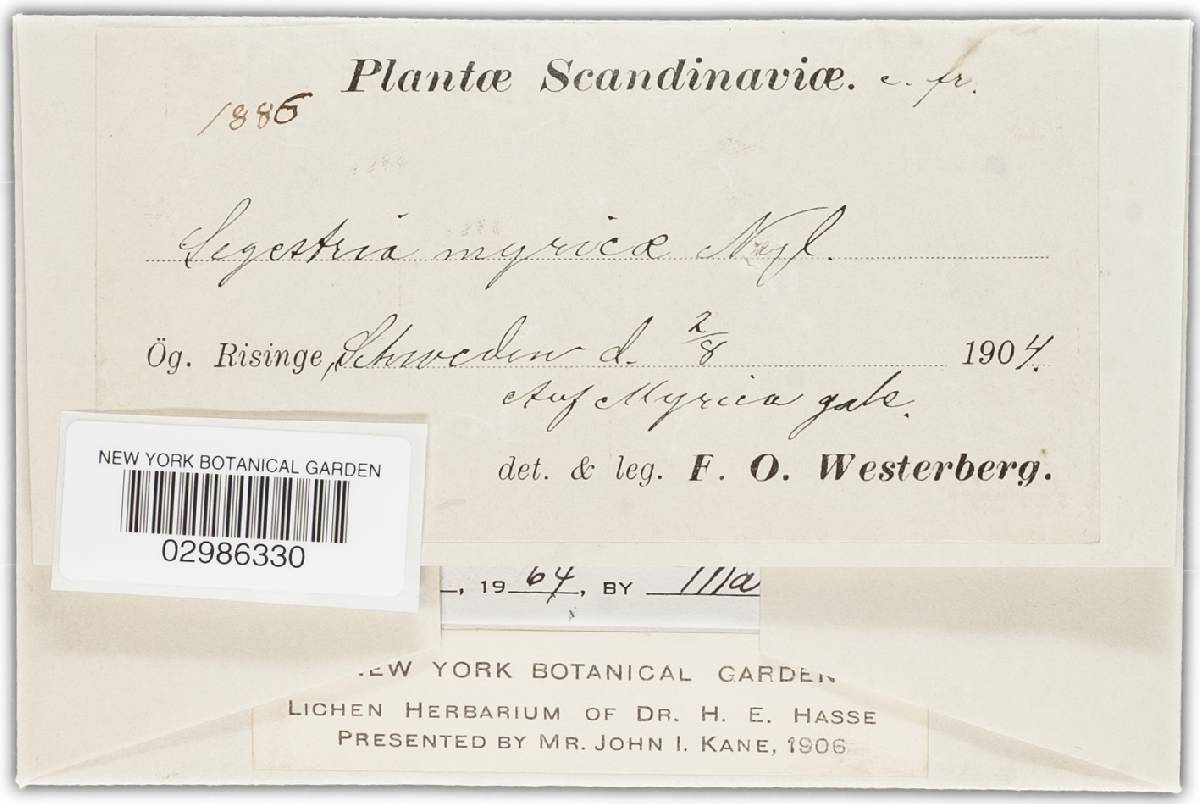 Plantæ Scandinaviæ. c. fr.
1886
Segestria myricæ Nyl.
Ög. Risinge, Schweden d. 2/8 1904.
Auf Myrica gale.
det. & leg. F. O. Westerberg.
NEW YORK BOTANICAL GARDEN
02986330
, 1964, BY
NEW YORK BOTANICAL GARDEN
LICHEN HERBARIUM OF DR. H. E. HASSE
PRESENTED BY MR. JOHN I. KANE, 1906